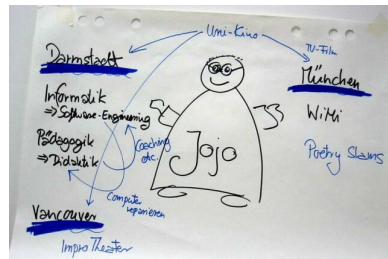 Uni-Kino
TV-Film
Darmstadt
München
Informatik
⇒ Software-Engineering
WiMi
Pädagogik
⇒ Didaktik
Coaching
etc.
Jojo
Poetry Slams
Computer
reparieren
Vancouver
Impro Theater